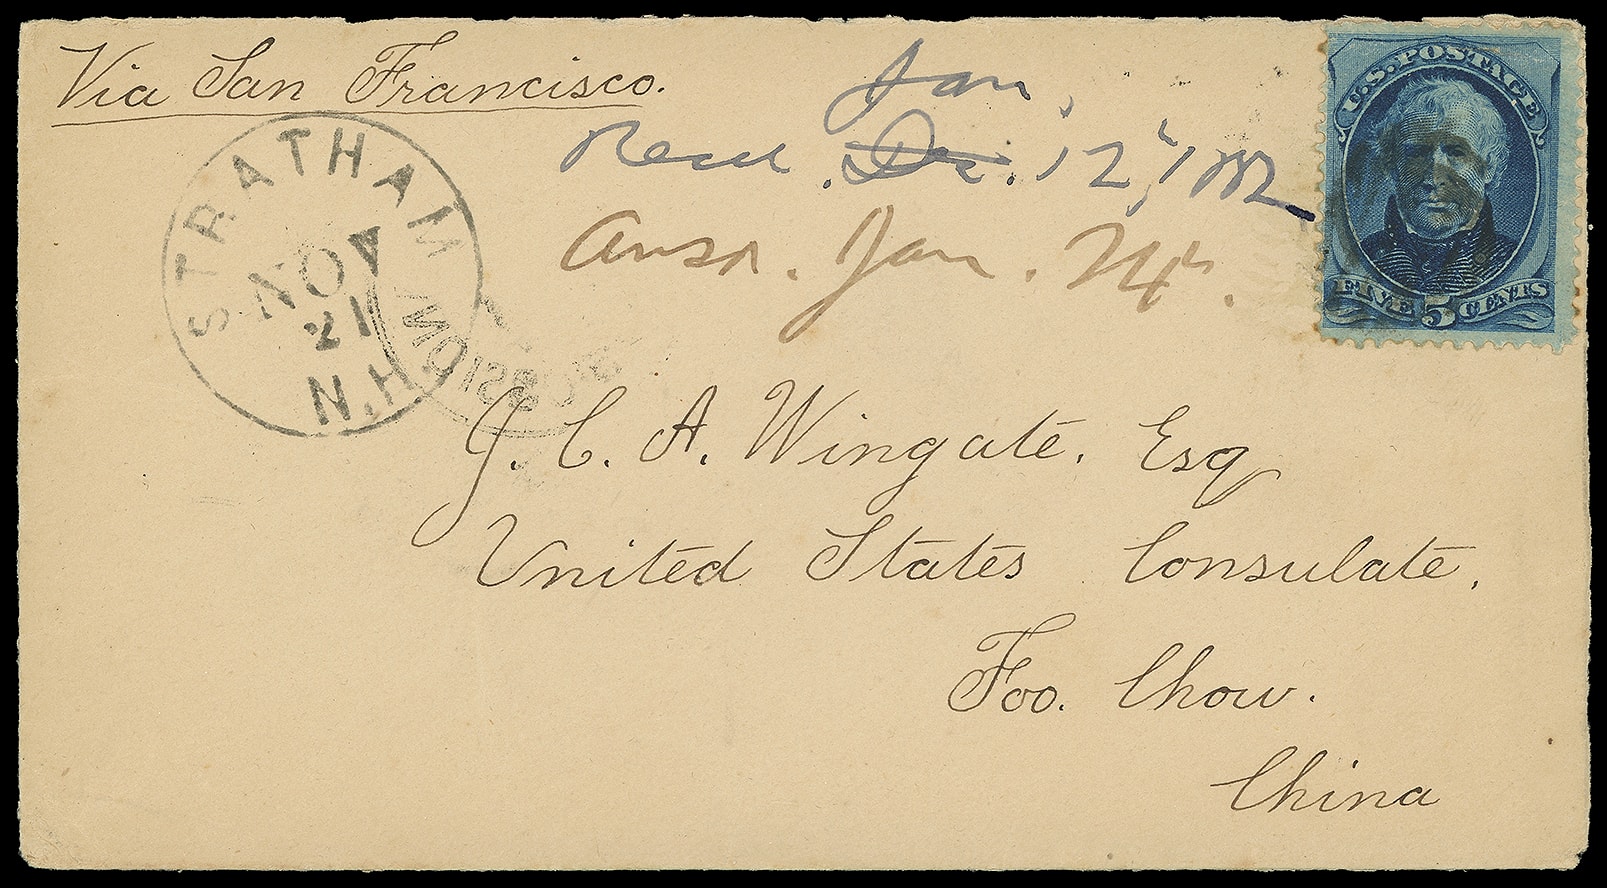 Via San Francisco.
Jan,
Recd. Dec. 12, 1882
Ansd. Jan. 24.
U.S. POSTAGE
FIVE 5 CENTS
STRATHAM
NOV
21
N.H.
J. C. A. Wingate. Esq
United States Consulate.
Foo. Chow.
China